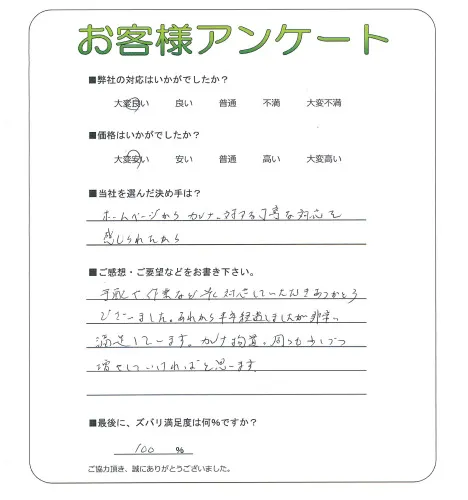 お客様アンケート
■弊社の対応はいかがでしたか？
大変良い 良い 普通 不満 大変不満
■価格はいかがでしたか？
大変安い 安い 普通 高い 大変高い
■当社を選んだ決め手は？
ホームページから カメに対する丁寧な対応を
感じられたから
■ご感想・ご要望などをお書き下さい。
作業など 対応していただきありがとう
ございました。あれから半年経過しましたが非常に
満足しています。
増やしていければと思います
■最後に、ズバリ満足度は何％ですか？
100 ％
ご協力頂き、誠にありがとうございました。